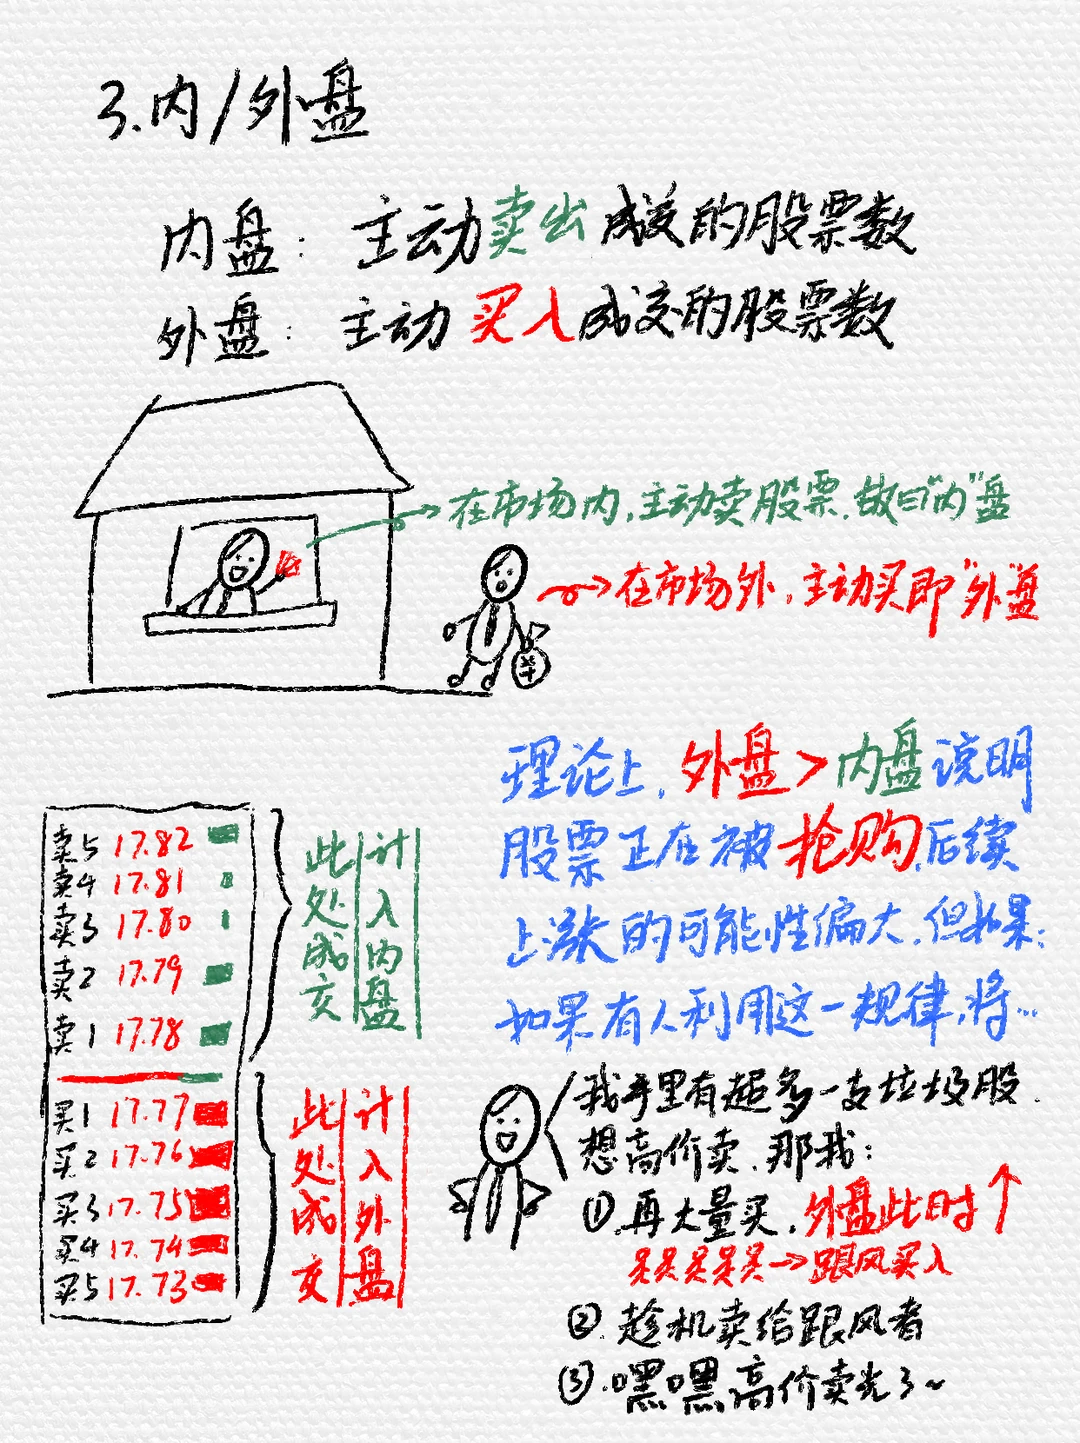 3.内/外盘
内盘: 主动卖出成交的股票数
外盘: 主动买入成交的股票数
在市场内,主动卖股票.故曰"内"盘
在市场外,主动买即"外"盘
¥
理论上,外盘>内盘说明
股票正在被抢购,后续
上涨的可能性偏大.但如果:
如果有人利用这一规律,将…
卖5 17.82
卖4 17.81
卖3 17.80
卖2 17.79
卖1 17.78
此处成交
计入内盘
买1 17.77
买2 17.76
买3 17.75
买4 17.74
买5 17.73
此处成交
计入外盘
我手里有超多一支垃圾股.
想高价卖.那我:
①.再大量买.外盘此时↑
→跟风买入
②.趁机卖给跟风者
③.嘿嘿,高价卖光了~